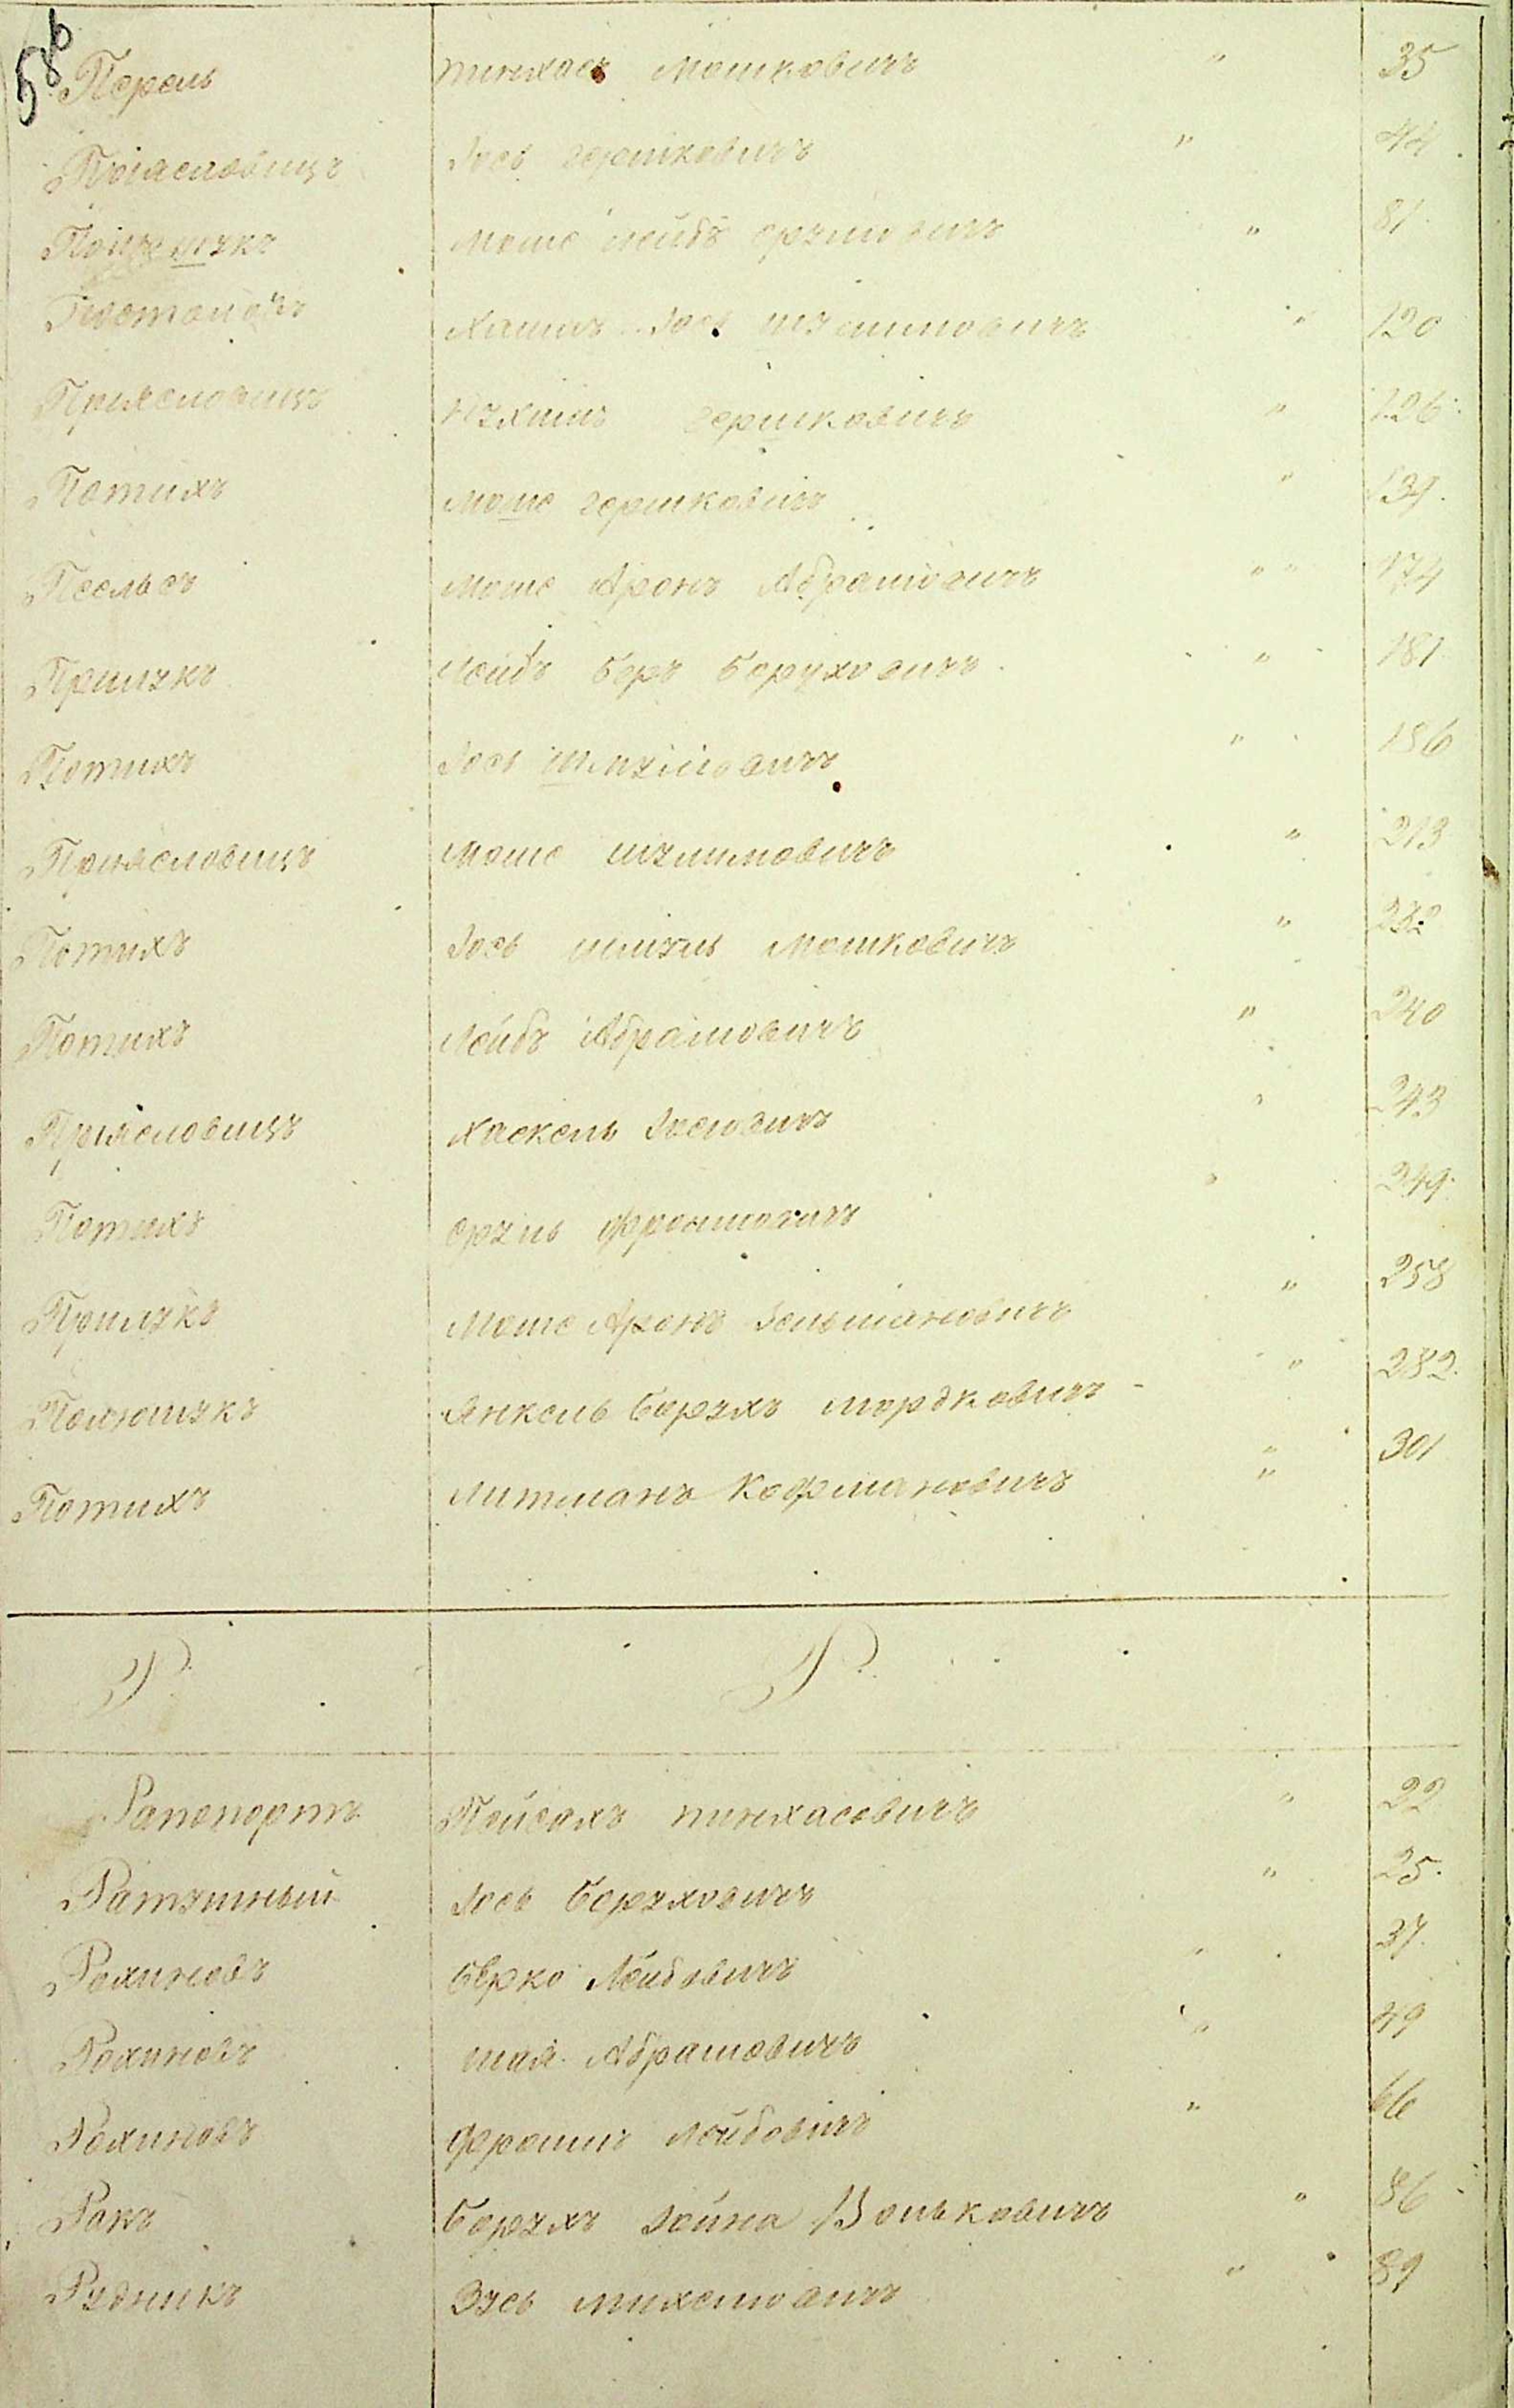 586
Перель Пинхасъ Мошковичъ " 35
Приясловицъ Іось Гершковичъ " 44
Мошо Лейбъ Срулиовичъ " 81
Хаимъ Іось Шулимовичъ " 120
Приясловицъ Нухимъ Гершковичъ " 126
Потихъ Мошо Гершковичъ " 139
Песельсъ Мошо Аронъ Абрамовичъ " 174
Прилукъ Лейбъ Беръ Боруховичъ " 181
Потихъ Іось Шмулиовичъ " 186
Приясловицъ Мошо Шулимовичъ " 213
Потихъ Іось Шмуль Мошковичъ " 232
Потихъ Лейбъ Абрамовичъ " 240
Приясловицъ Хаскель Іосиовичъ " 243
Потихъ Сруль Фроимовичъ " 249
Прилукъ Мошо Аронъ Зельмановичъ " 258
Полюшукъ Янкель Борухъ Мордковичъ " 282
Потихъ Литманъ Кофмановичъ " 301
Р Р
Рапопортъ Пейсахъ Пинхасовичъ " 22
Ратушный Іось Боруховичъ " 25
Рохиновъ Берко Лейбовичъ " 37
Рохиновъ Шая Абрамовичъ " 49
Рохиновъ Фроимъ Лейбовичъ " 66
Ракъ Борухъ Іойна Вольковичъ " 86
Рудникъ Зусь Михелиовичъ " 89